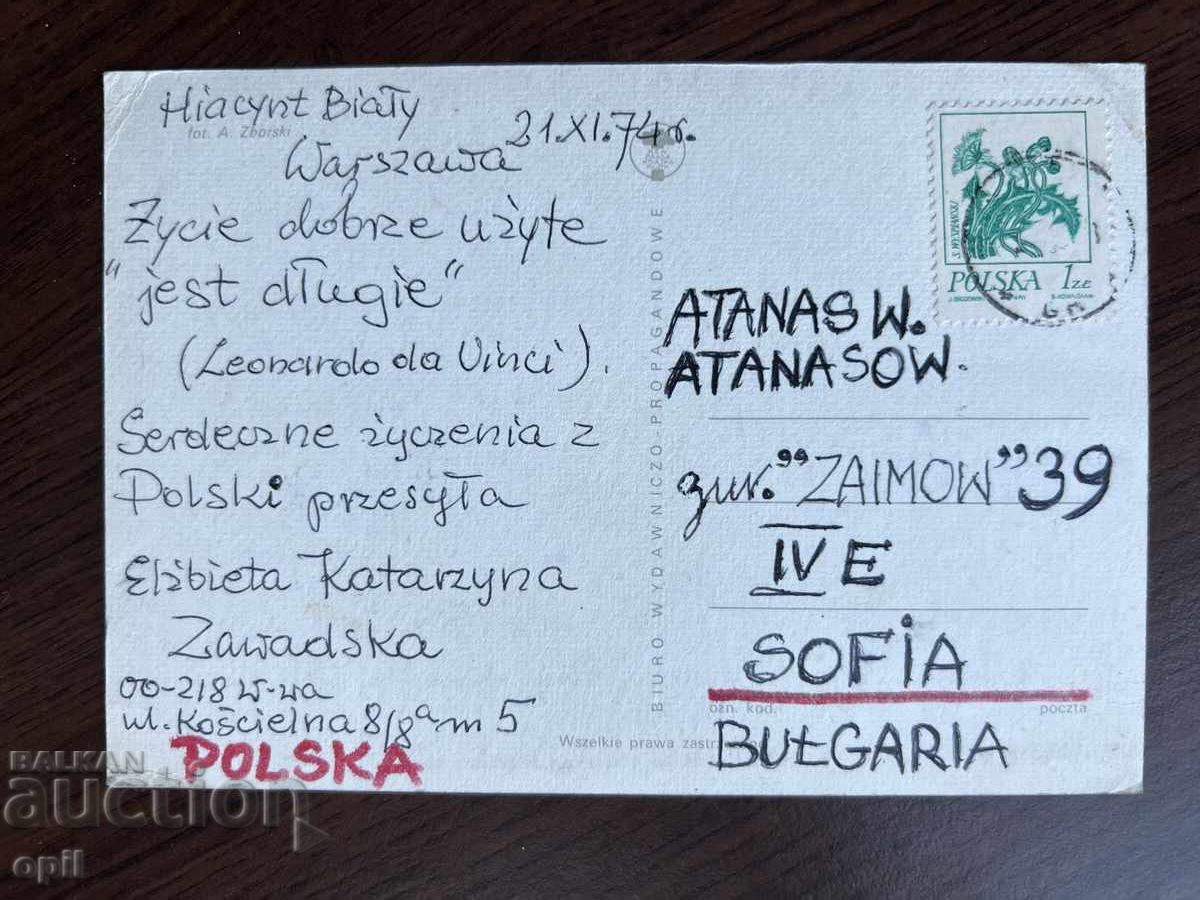 Hiacynt Biały
fot. A. Zborski
Warszawa 21.XI.74r.
Życie dobrze użyte
"jest długie"
(Leonardo da Vinci).
Serdeczne życzenia z
Polski przesyła
Elżbieta Katarzyna
Zawadska
00-218 W-wa
ul. Kościelna 8/8a m 5
POLSKA
BIURO WYDAWNICZO PROPAGANDOWE
Wszelkie prawa
S. WYSPIAŃSKI
POLSKA 1 ZŁ
ATANAS W.
ATANASOW.
"ZAIMOW" 39
IV E
SOFiA
ozn. kod. poczta
BUŁGARIA
BALKAN
auction
opil